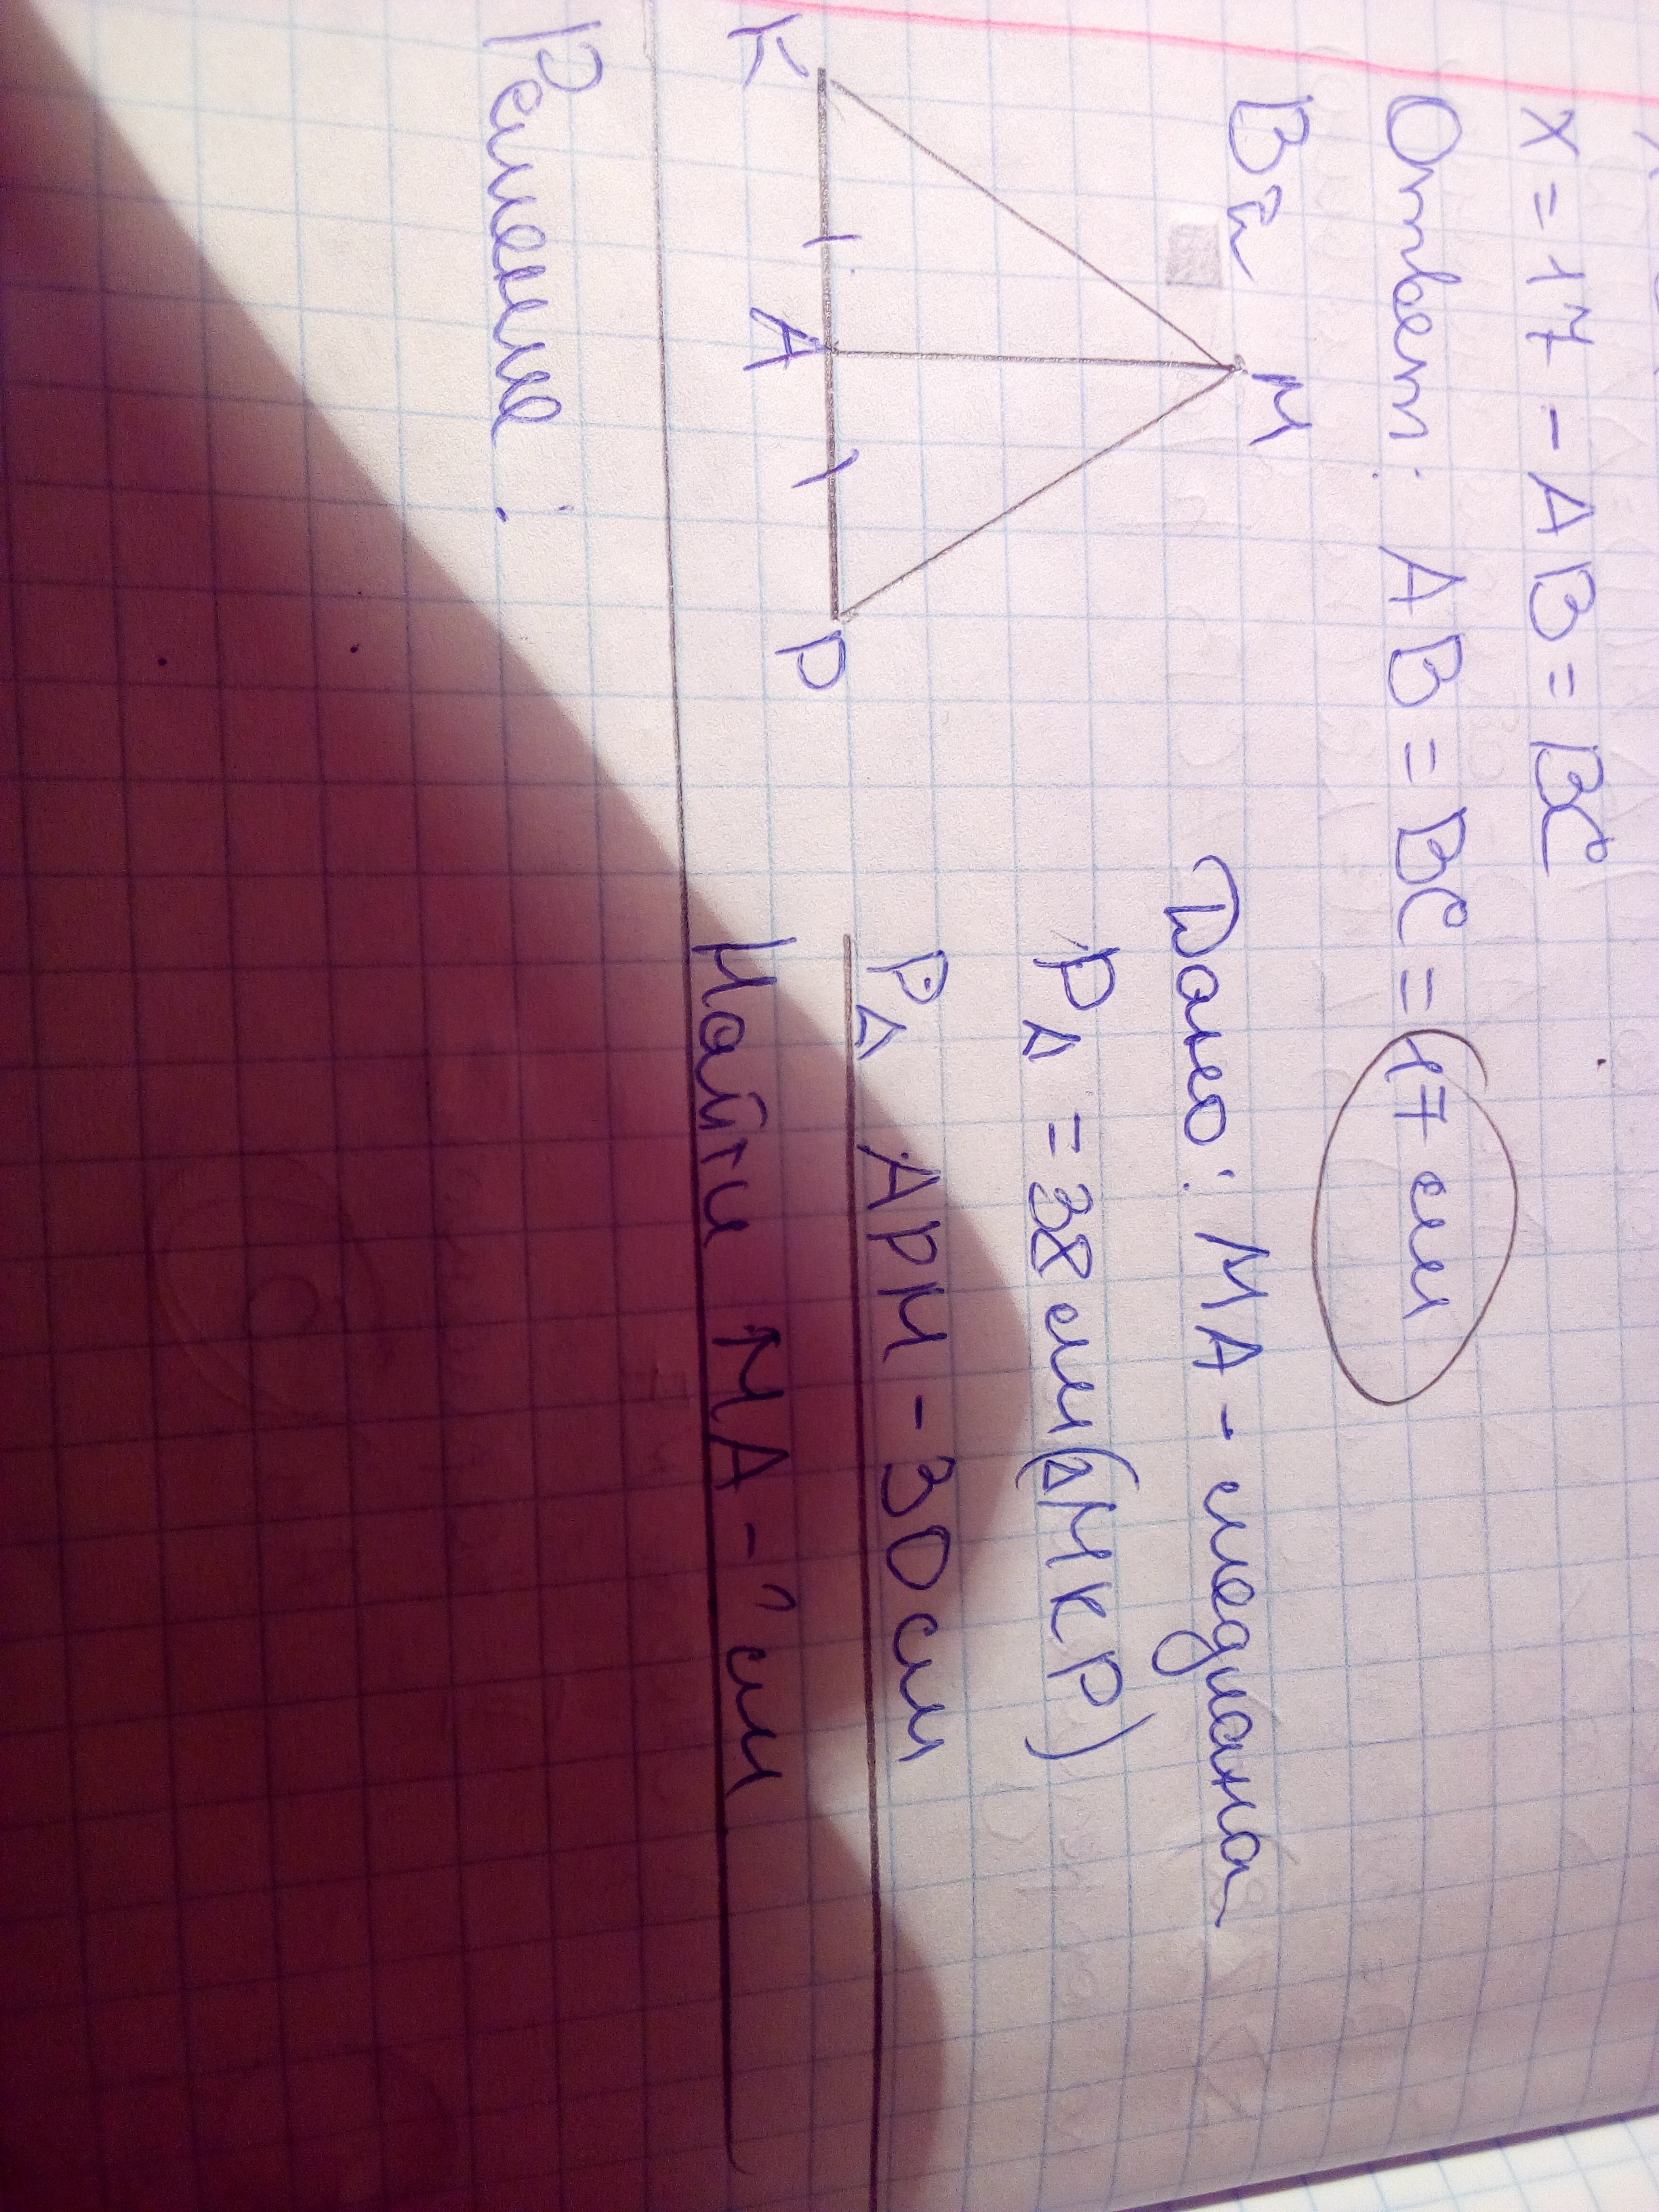 x = 17 - AB = BC
Ответ: AB = BC = 17 см
В2
M
K
A
P
Дано: MA - медиана
P△ = 38 см (△MKP)
P△ APM - 30 см
Найти MA - ? см
Решение: